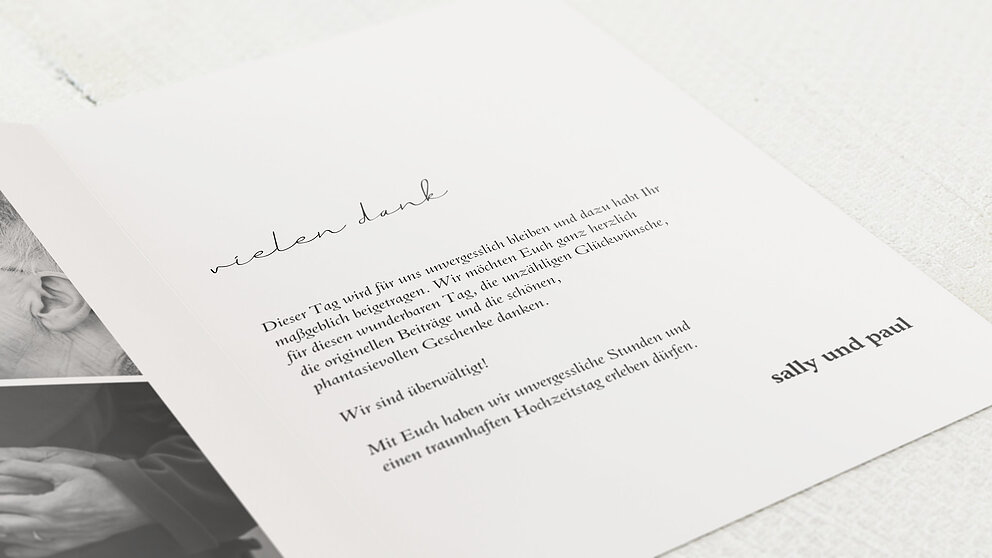 vielen dank
Dieser Tag wird für uns unvergesslich bleiben und dazu habt Ihr
maßgeblich beigetragen. Wir möchten Euch ganz herzlich
für diesen wunderbaren Tag, die unzähligen Glückwünsche,
die originellen Beiträge und die schönen,
phantasievollen Geschenke danken.
Wir sind überwältigt!
Mit Euch haben wir unvergessliche Stunden und
einen traumhaften Hochzeitstag erleben dürfen.
sally und paul